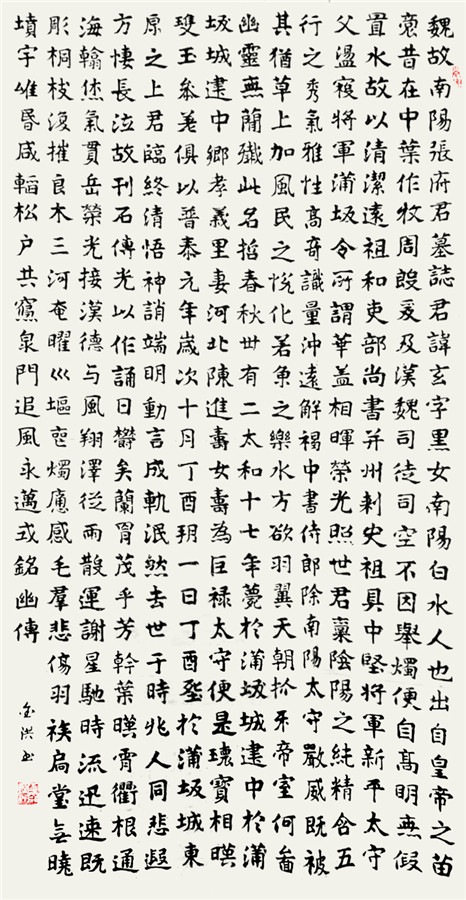 魏故南陽張府君墓誌君諱玄字黑女南陽白水人也出自皇帝之苗
裔昔在中葉作牧周殷爰及漢魏司徒司空不因舉燭便自高明無假
置水故以清潔遠祖和吏部尚書并州刾史祖具中堅將軍新平太守
父盪寇將軍蒲坂令所謂華蓋相暉榮光照世君稟陰陽之純精含五
行之秀氣雅性高奇識量沖遠解褐中書侍郎除南陽太守嚴威既被
其猶草上加風民之悅化若魚之樂水方欲羽翼天朝抓牙帝室何啚
幽靈無蕳殲此名哲春秋卅有二太和十七年薨於蒲坂城建中於蒲
坂城建中鄉孝義里妻河北陳進壽女壽為巨祿太守便是瓌寶相暎
雙玉參差俱以普泰元年歲次十月丁酉朔一日丁酉塟於蒲坂城東
原之上君臨終清悟神誚端明動言成軌泯然去世于時兆人同悲遐
方悽長泣故刊石傳光以作誦曰欝矣蘭胃茂乎芳幹葉暎霄衢根通
海翰烋氣貫岳榮光接漢德与風翔澤從雨散運謝星馳時流迅速既
彫桐枝復摧良木三河奄曜巛塸喪燭痛感毛羣悲傷羽族扃堂無曉
墳宇唯昏咸輼松户共寢泉門追風永邁式銘幽傳
金洪书